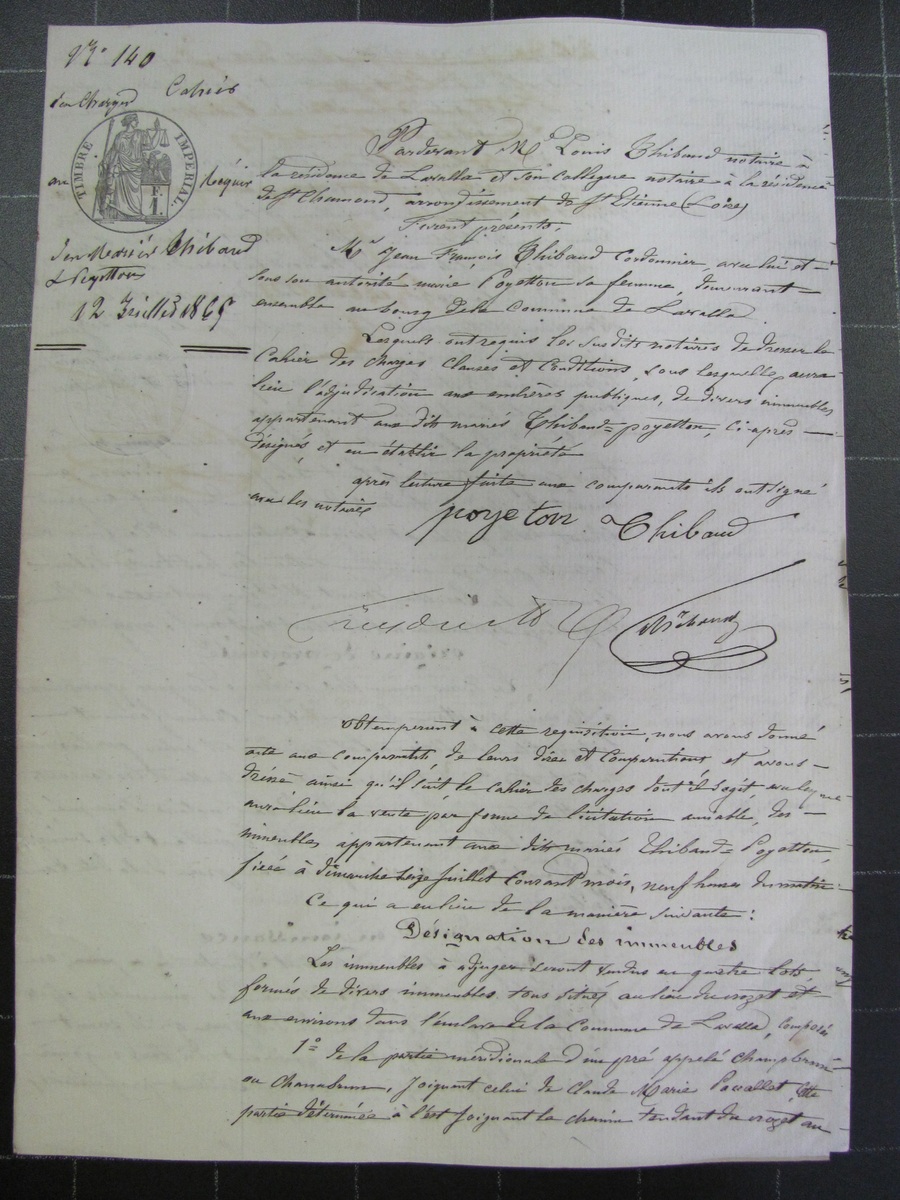 N° 140
Cahier
des Charges
TIMBRE IMPERIAL
au Requis
des Mariés Thibaud
& Poyetton
12 Juillet 1865
Pardevant Me Louis Thibaud notaire à
la résidence de Lavalla et son collègue notaire à la résidence
de St Chamond, arrondissement de St Etienne (Loire)
Furent présents.
Mr Jean François Thibaud Cordonnier, avec lui et
sous son autorité marie Poyetton sa femme, demeurant
ensemble au bourg de la Commune de Lavalla
Lesquels ont requis les susdits notaires de dresser le
Cahier des charges clauses et Conditions, sous lesquelles aura
lieu l'adjudication aux enchères publiques, de divers immeubles
appartenant aux dits mariés Thibaud=poyetton, ci-après
désignés et en établir la propriété
après lecture faite aux comparants ils ont signé
avec les notaires
poyeton Thibaud
Thibaud
obtempérant à cette requisition, nous avons donné
acte aux comparants, de leurs dires et Comparutions et avons
dréssé ainsi qu'il suit le cahier des charges dont il s'agit
aura lieu la vente par forme de licitation amiable, des
immeubles appartenant aux dits mariés Thibaud=Poyetton,
fixée à dimanche seize Juillet Courant mois, neuf heures du matin
Ce qui a eu lieu de la manière suivante:
Désignation des immeubles
Les immeubles à adjuger seront vendus en quatre lots,
formés de divers immeubles tous situés au lieu du crozet et
aux environs dans l'enclave de la Commune de Lavalla, composés
1° de la partie méridionale d'un pré appelé
ou Chamabrun, Joignant celui de Claude Marie
partie déterminée à l'est Joignant le chemin tendant du crozet au